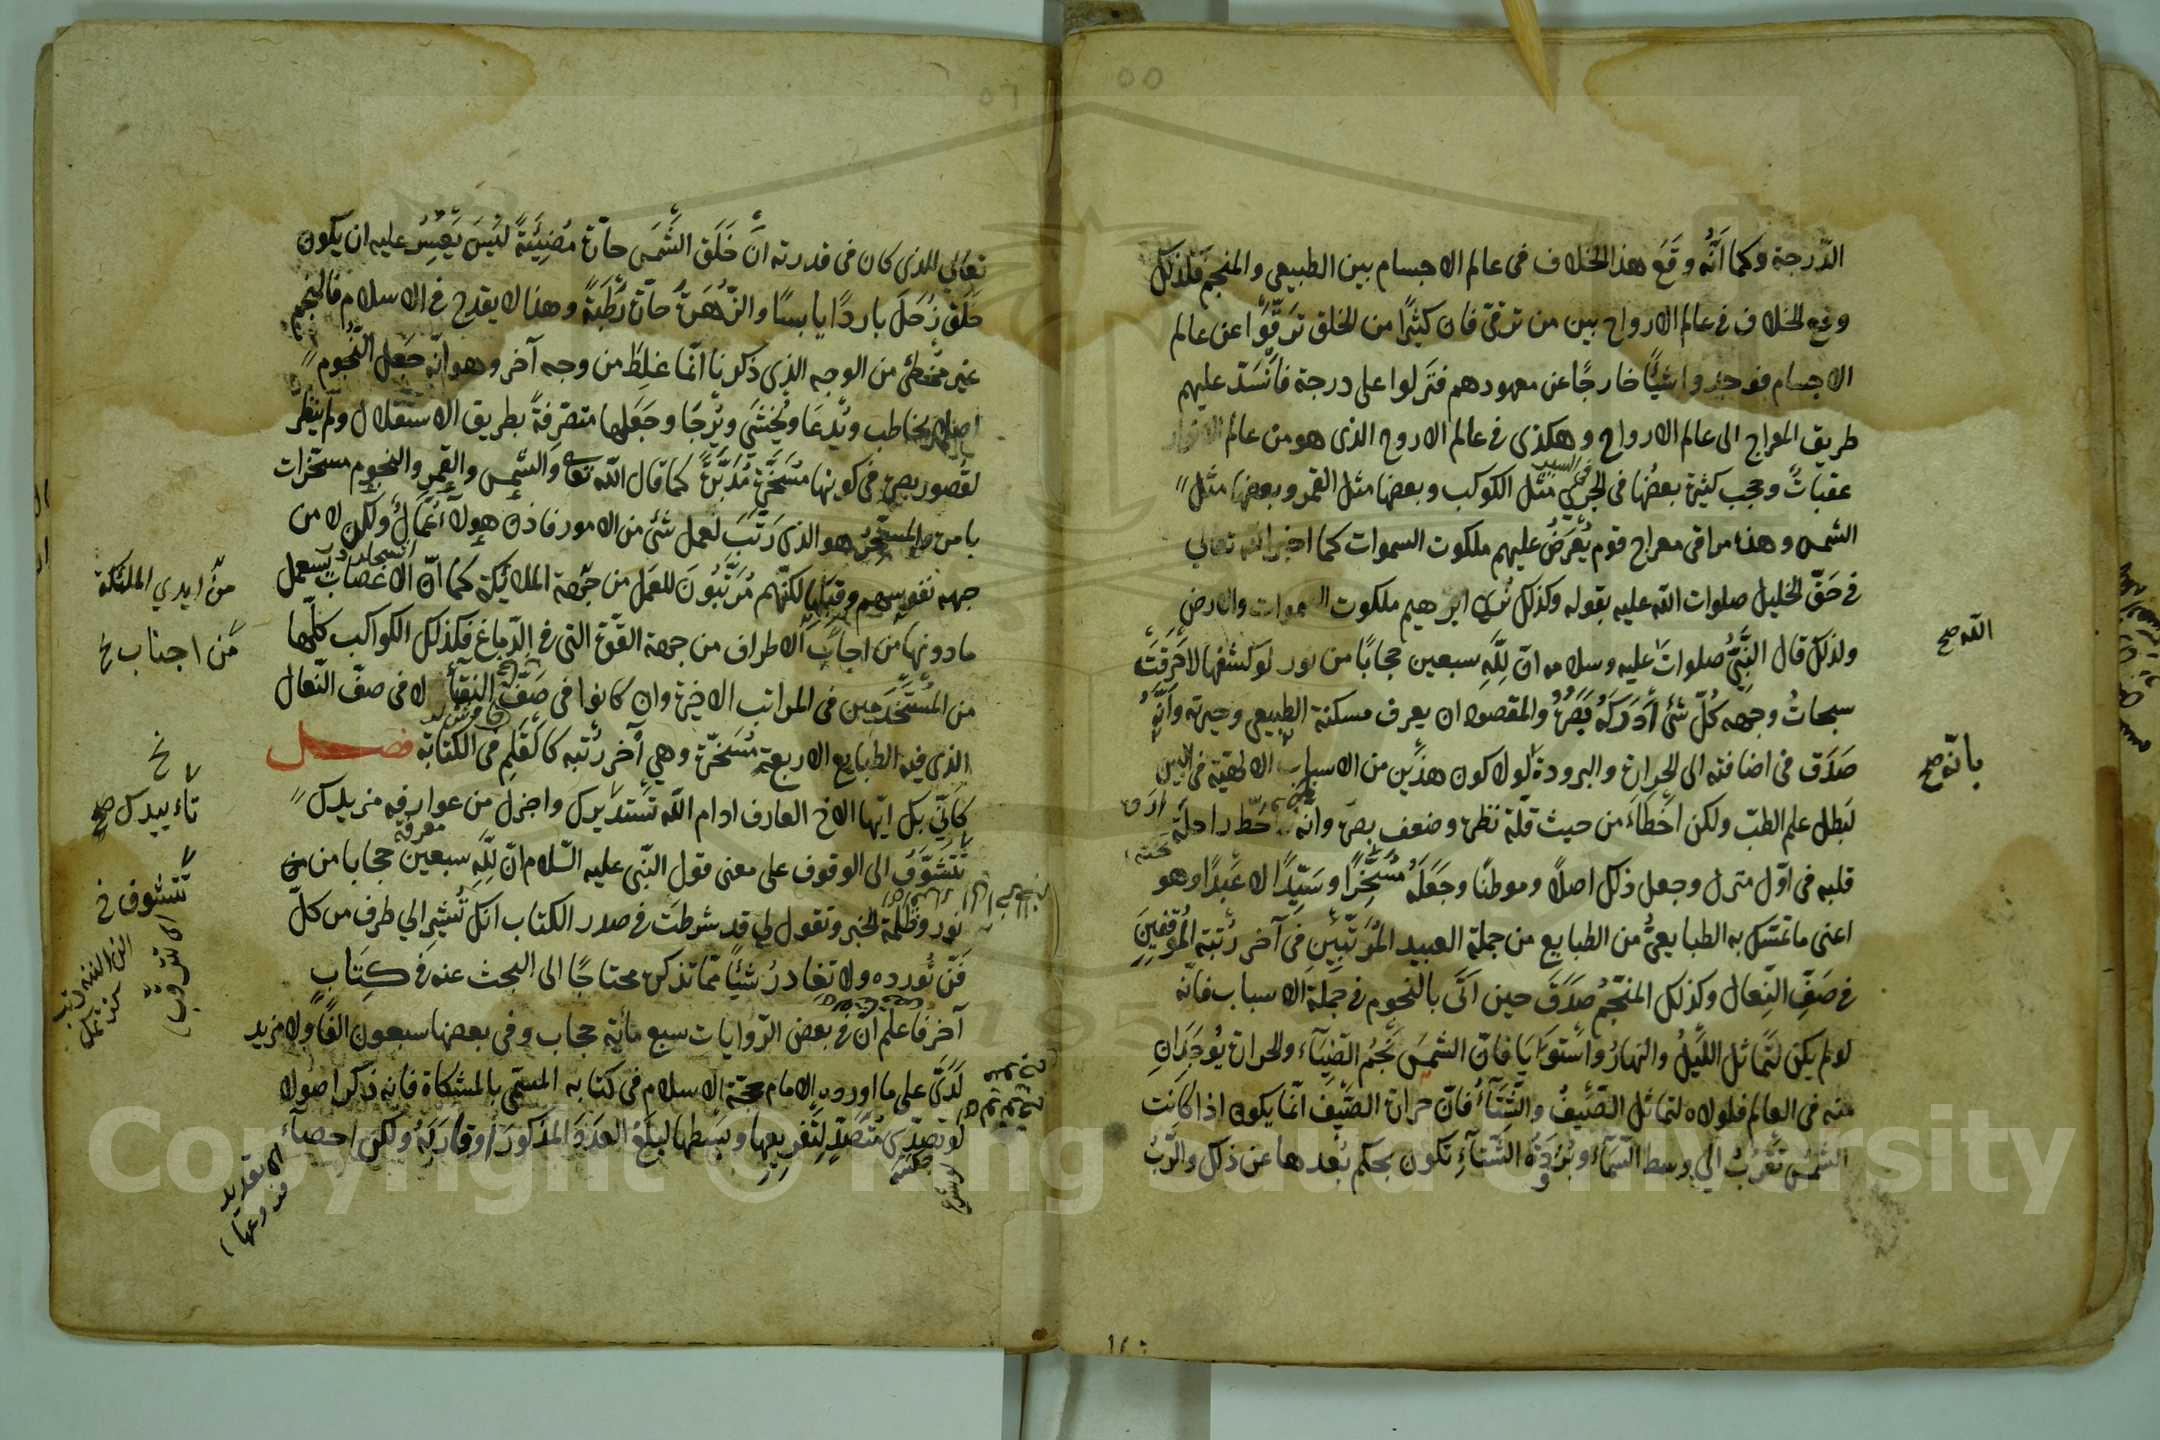 ٥٥
الدّرجة وكما أنّه وقع هذا الخلاف فى عالم الاجسام بين الطبيعي والمنجم فلذلك
وقع الخلاف فى عالم الارواح بين من ترقى فان كثيرًا من الخلق ترقّوا عن عالم
الاجسام فوجدوا شيئًا خارجًا عن معهودهم فنزلوا على درجة فانسدّ عليهم
طريق المعراج الى عالم الارواح وهكذى فى عالم الاروح الذى هو من عالم الانوار
عقباتٌ وحجب كثيرة بعضُها فى الحجب مثل الكوكب وبعضها مثل القمر وبعضها مثل
الشمس وهذه مراقى معراج قوم يُعرَضُ عليهم ملكوت السموات كما اخبر الله تعالي
فى حَقّ الخليل صلوات الله عليه بقوله وكذلك نُرى ابرهيم ملكوت السموات والارض
ولذلك قال النّبيّ صلوات عليه وسلامه انّ لِلّهِ سبعين حجابًا من نور لو كشفها لاحرقت
الله صح
سبحاتُ وجهه كلّ شئ أدركهُ بَصَرُهُ والمقصود ان يعرف مسكنة الطبيعي وحيرته وأنّه
صَدَق فى اضافته الى الحرارة والبرودة لولا كون هذين من الاسباب الالهية فى
بانّه صح
لبَطل علم الطبّ ولكن اخطاءَ من حيث قلّة نظره وضعف بصره وانه حَطّ راحلة
قلبه فى اوّل منزل وجعل ذلك اصلًا وموطنًا وجَعَلَهُ مُسَخِّرًا وسَيّدًا لا عَبدًا وهو
اعنى ما تمسّك به الطبايعيُّ من الطبايع من جملة العبيد المُرَتّبين فى آخر رُتبة المُوقفينَ
فى صَفّ النّعال وكذلك المنجّم صَدَقَ حين اتَى بالنجوم فى جملة الاسباب فانّه
لو لم يكن لتماثل اللّيلُ والنهارُ واستويا فان الشمسَ نجمُ الضيآء والحرارة يُوجَدانِ
منه فى العالم فلولاه لتماثل الصّيفُ والشّتآءُ فانّ حرارة الصّيف انّما يكون اذا كانت
الشمسُ تقربُ الي وسط السّمآء وبُرُودَةُ الشّتآءِ تكون بحكم بُعدها عن ذلك والرّبُ
٥٦
تعالى الذى كان فى قدرته انَّ خَلَق الشَّمسَ حارّة مُضِيئةً ليسَ يَعسُرُ عليه ان يكون
خلَق زُحَلَ باردًا يابسًا والزُّهَرَةَ حارّة رَطبَةً وهذا لا يقدح فى الاسلام فالمنجم
غير مخطئ من الوجه الذى ذكرنا انّما غلِطَ من وجه آخر وهو انّه جَعل النّجوم
اصلا يخاطب ويُدعَا ويُخشَي ويُرجَا وجَعَلها متصرّفةً بطريق الاستقلال ولم ينظر
لقصور بصره فى كونها مُسَخَّرة مُدَبَّرَةً كما قال الله تعالى والشمس والقمر والنجوم مسخّرات
بامره والمسخّرُ هو الذى رَتّبَ لعمل شئ من الامور فاذن هولآء عُمّالٌ ولكن لا من
جهه نفوسهم وقِبَلِها لكنّهم مُرَتّبُونَ للعَمل من جهة الملائكة كما انّ الاعصاب تسعمل
منّ ايدي الملئكة
مادونها من الاطراف من جهة القوّة التى فى الدّماغ فكذلك الكواكب كلّها
من اجناب خ
من المُستَخدَمين فى المراتب الاخيرة وان كانوا فى صَفّ النقبآء لا فى صفّ النّعال
الذى فيه الطبايع الاربعة مُسَخّرة وهي آخر رُتبه كالقلم فى الكتابة فصل
كأنّي بك ايّها الاخ العارف ادام الله واجزل من عوارفه مزيدك
خ
تاءييدك صح
تَتَشَوَّفُ الى الوقوف على معنى قول النّبى عليه السّلام انّ لِلّهِ سبعين حجابا من
معرفة
تتشوف خ
نور وظلمة الخبر وتقول لي قد شرطتَ فى صدر الكتاب انك تُشير الي طرف من كلّ
فَنّ تُورده ولا تغادرُ شيئًا ممّا تذكره محتاجًا الى البحث عنه فى كِتَابٍ
آخر فاعلم أنّ فى بعض الرّوايات سبع مائة حجاب وفى بعضها سبعون الفًا ولا مزيد
لَدَيَّ على ما اورده الامام حجّة الاسلام فى كتابه المسمّى بالمشكاة فانه ذكر اصولا
لو تصدّى مُتَصَدٍّ لتفريعها وبَسَطها لبَلَغَ العدَدَ المذكورَ اوقارَبَهُ ولكن احصآءَ